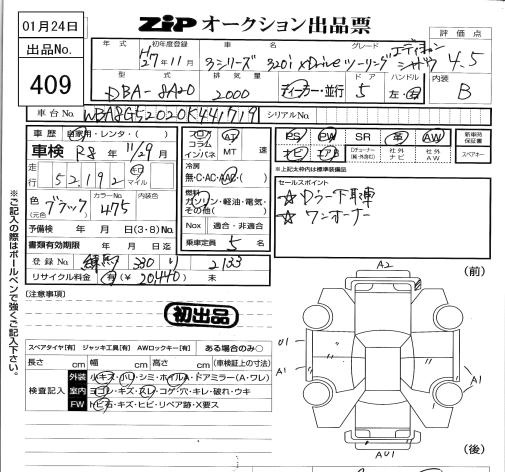 01月24日
出品No.
409
ZIP オークション出品票
評価点
4.5
年式 初年度登録 車名 グレード
H27年11月 3シリーズ 320i xDriveツーリング エディションシャドウ
型式 排気量 ドア ハンドル 内装
DBA-8A20 2000 ディーラー・並行 5 左・右 B
車台No. WBA8G52020K441719 シリアルNo.
車歴 自家用・レンタ・( )
車検 R8年11/29月
走行 52,192 キロ マイル
色(元色) ブラック カラーNo. 475 内装色
予備検 年 月 日(3・8)No.
書類有効期限 年 月 日迄
登録No. 練馬 330 り 2133
リサイクル料金 有(¥20,440) 未
フロア コラム インパネ AT MT 速
冷房 無・C・AC・AAC
燃料 ガソリン・軽油・電気・その他( )
Nox 適合・非適合
乗車定員 5 名
PS PW SR 革 AW 新車時保証書
ナビ エアB Dチューナー(純・外含む) 社外ナビ 社外AW スペアキー
※上記太枠内は標準装備品
セールスポイント
☆Dラー下取車
☆ワンオーナー
※ご記入の際はボールペンで強くご記入下さい。
[注意事項]
初出品
スペアタイヤ[有] ジャッキ工具[有] AWロックキー[有] ある場合のみ○
長さ cm 幅 cm 高さ cm (車検証上の寸法)
検査記入
外装 小キズ・小凹・シミ・ホイルA・ドアミラー(A・ワレ)
室内 ヨゴレ・キズ・スレ・コゲ・穴・キレ・破れ・ウキ
FW トビ石・キズ・ヒビ・リペア跡・X要ス
(前)
A2
U1
A1
A1
AU1
(後)